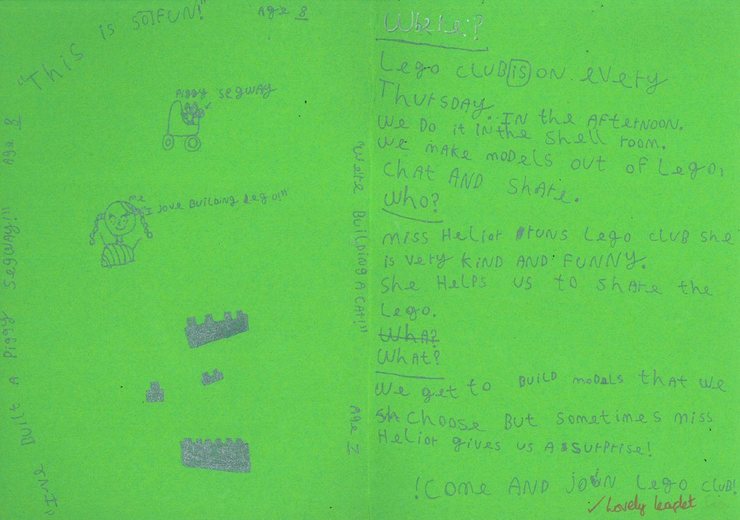 "This is so FUN!"
Age 8
Piggy segway
me
"I love Building Lego!"
"We Built A Piggy segway!!" Age 8
"We're BuildiNg A cat!!"
Age 7
Where?
Lego cluB is oN every
Thursday. IN the AfterNooN.
We Do it iN the shell room.
We make moDels out of Lego,
chat AND share.
Who?
miss Heliot runs Lego club she
is very kiND AND fuNNy.
She Helps us to share the
Lego.
Wha?
What?
We get to BuilD moDels that we
choose But sometimes miss
Heliot gives us A surprise!
!Come AND joiN Lego club!
✓ Lovely leaflet